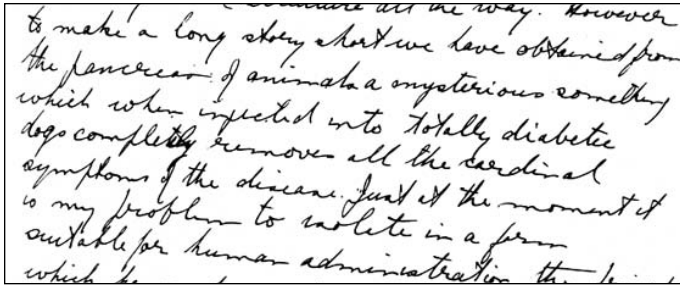 all the way. However
to make a long story short we have obtained from
the pancreas of animals a mysterious something
which when injected into totally diabetic
dogs completely removes all the cardinal
symptoms of the disease. Just at the moment it
is my problem to isolate in a form
suitable for human administration the
which